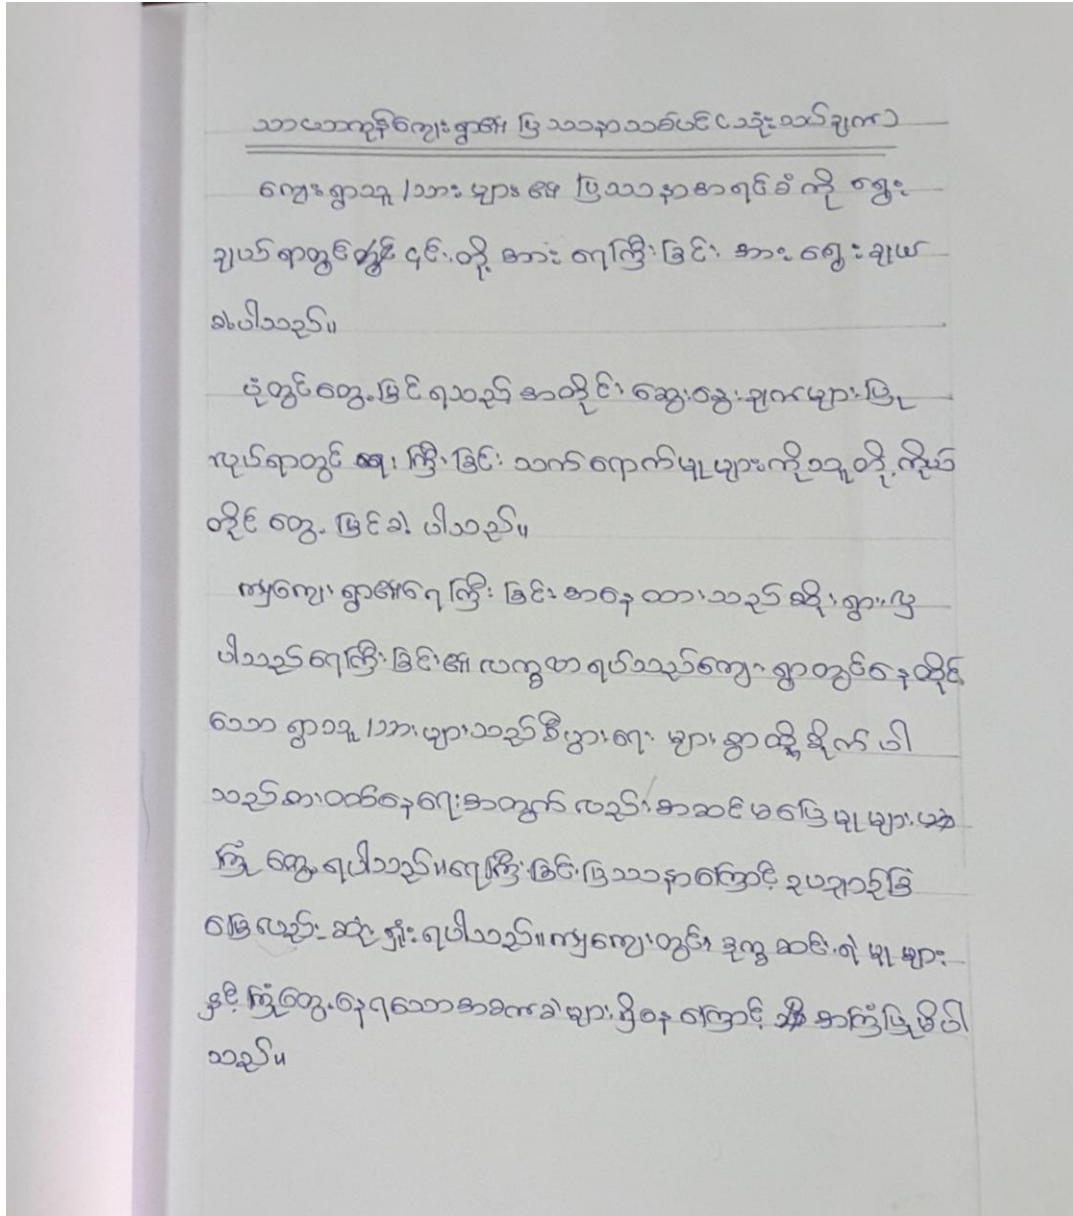 သာယာကုန်ကျေးရွာ၏ ပြဿနာသစ်ပင် သုံးသပ်ချက်
ကျေးရွာသူ/သားများ၏ ပြဿနာစာရင်းကို ရွေး
ချယ်ရာတွင် ၎င်းတို့အား ရေကြီးခြင်းအား ရွေးချယ်
ခဲ့ပါသည်။
ပုံတွင်တွေ့မြင်ရသည့်အတိုင်း ဆွေးနွေးချက်များပြု
လုပ်ရာတွင် ရေကြီးခြင်း သက်ရောက်မှုများကိုသူတို့ကိုယ်
တိုင် တွေ့မြင်ခဲ့ပါသည်။
ကျေးရွာ၏ရေကြီးခြင်းအနေထားသည်ဆိုးရွားလှ
ပါသည်ရေကြီးခြင်း၏လက္ခဏာရပ်သည်ကျေးရွာတွင်နေထိုင်
သော ရွာသူ/သားများသည်စီးပွားရေး များစွာထိခိုက်ပါ
သည်စားဝတ်နေရေးအတွက်လည်းအဆင်မပြေမှုများ
ကြုံတွေ့ရပါသည်။ရေကြီးခြင်းပြဿနာကြောင့် ဥယျာဉ်ခြံ
မြေလည်းဆုံးရှုံးရပါသည်။ကျေးတွင်းဒုက္ခဆင်းရဲမှုများ
နှင့်ကြုံတွေ့နေရသောအခက်ခဲများရှိနေကြောင့် အကြံပြုမိပါ
သည်။